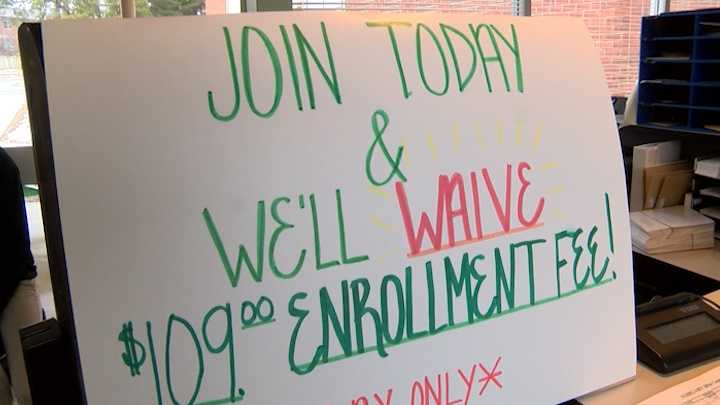 JOIN TODAY
&
WE'LL WAIVE
$109.00 ENROLLMENT FEE!
ONLY*